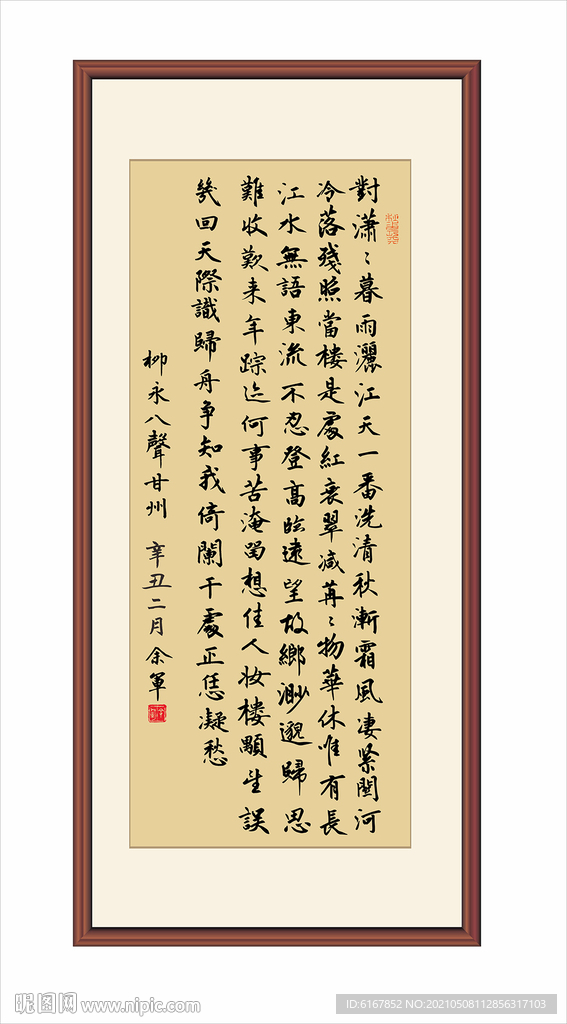 對瀟〻暮雨灑江天一番洗清秋漸霜風凄緊關河
冷落殘照當楼是處紅衰翠减苒〻物華休唯有長
江水無語東流不忍登高臨遠望故鄉渺邈歸思
難收歎来年踪迹何事苦淹留想佳人妝楼顒望誤
幾回天際識歸舟争知我倚闌干處正恁凝愁
柳永八聲甘州 辛丑二月余軍
昵图网 www.nipic.com
ID:6167852 NO:20210508112856317103